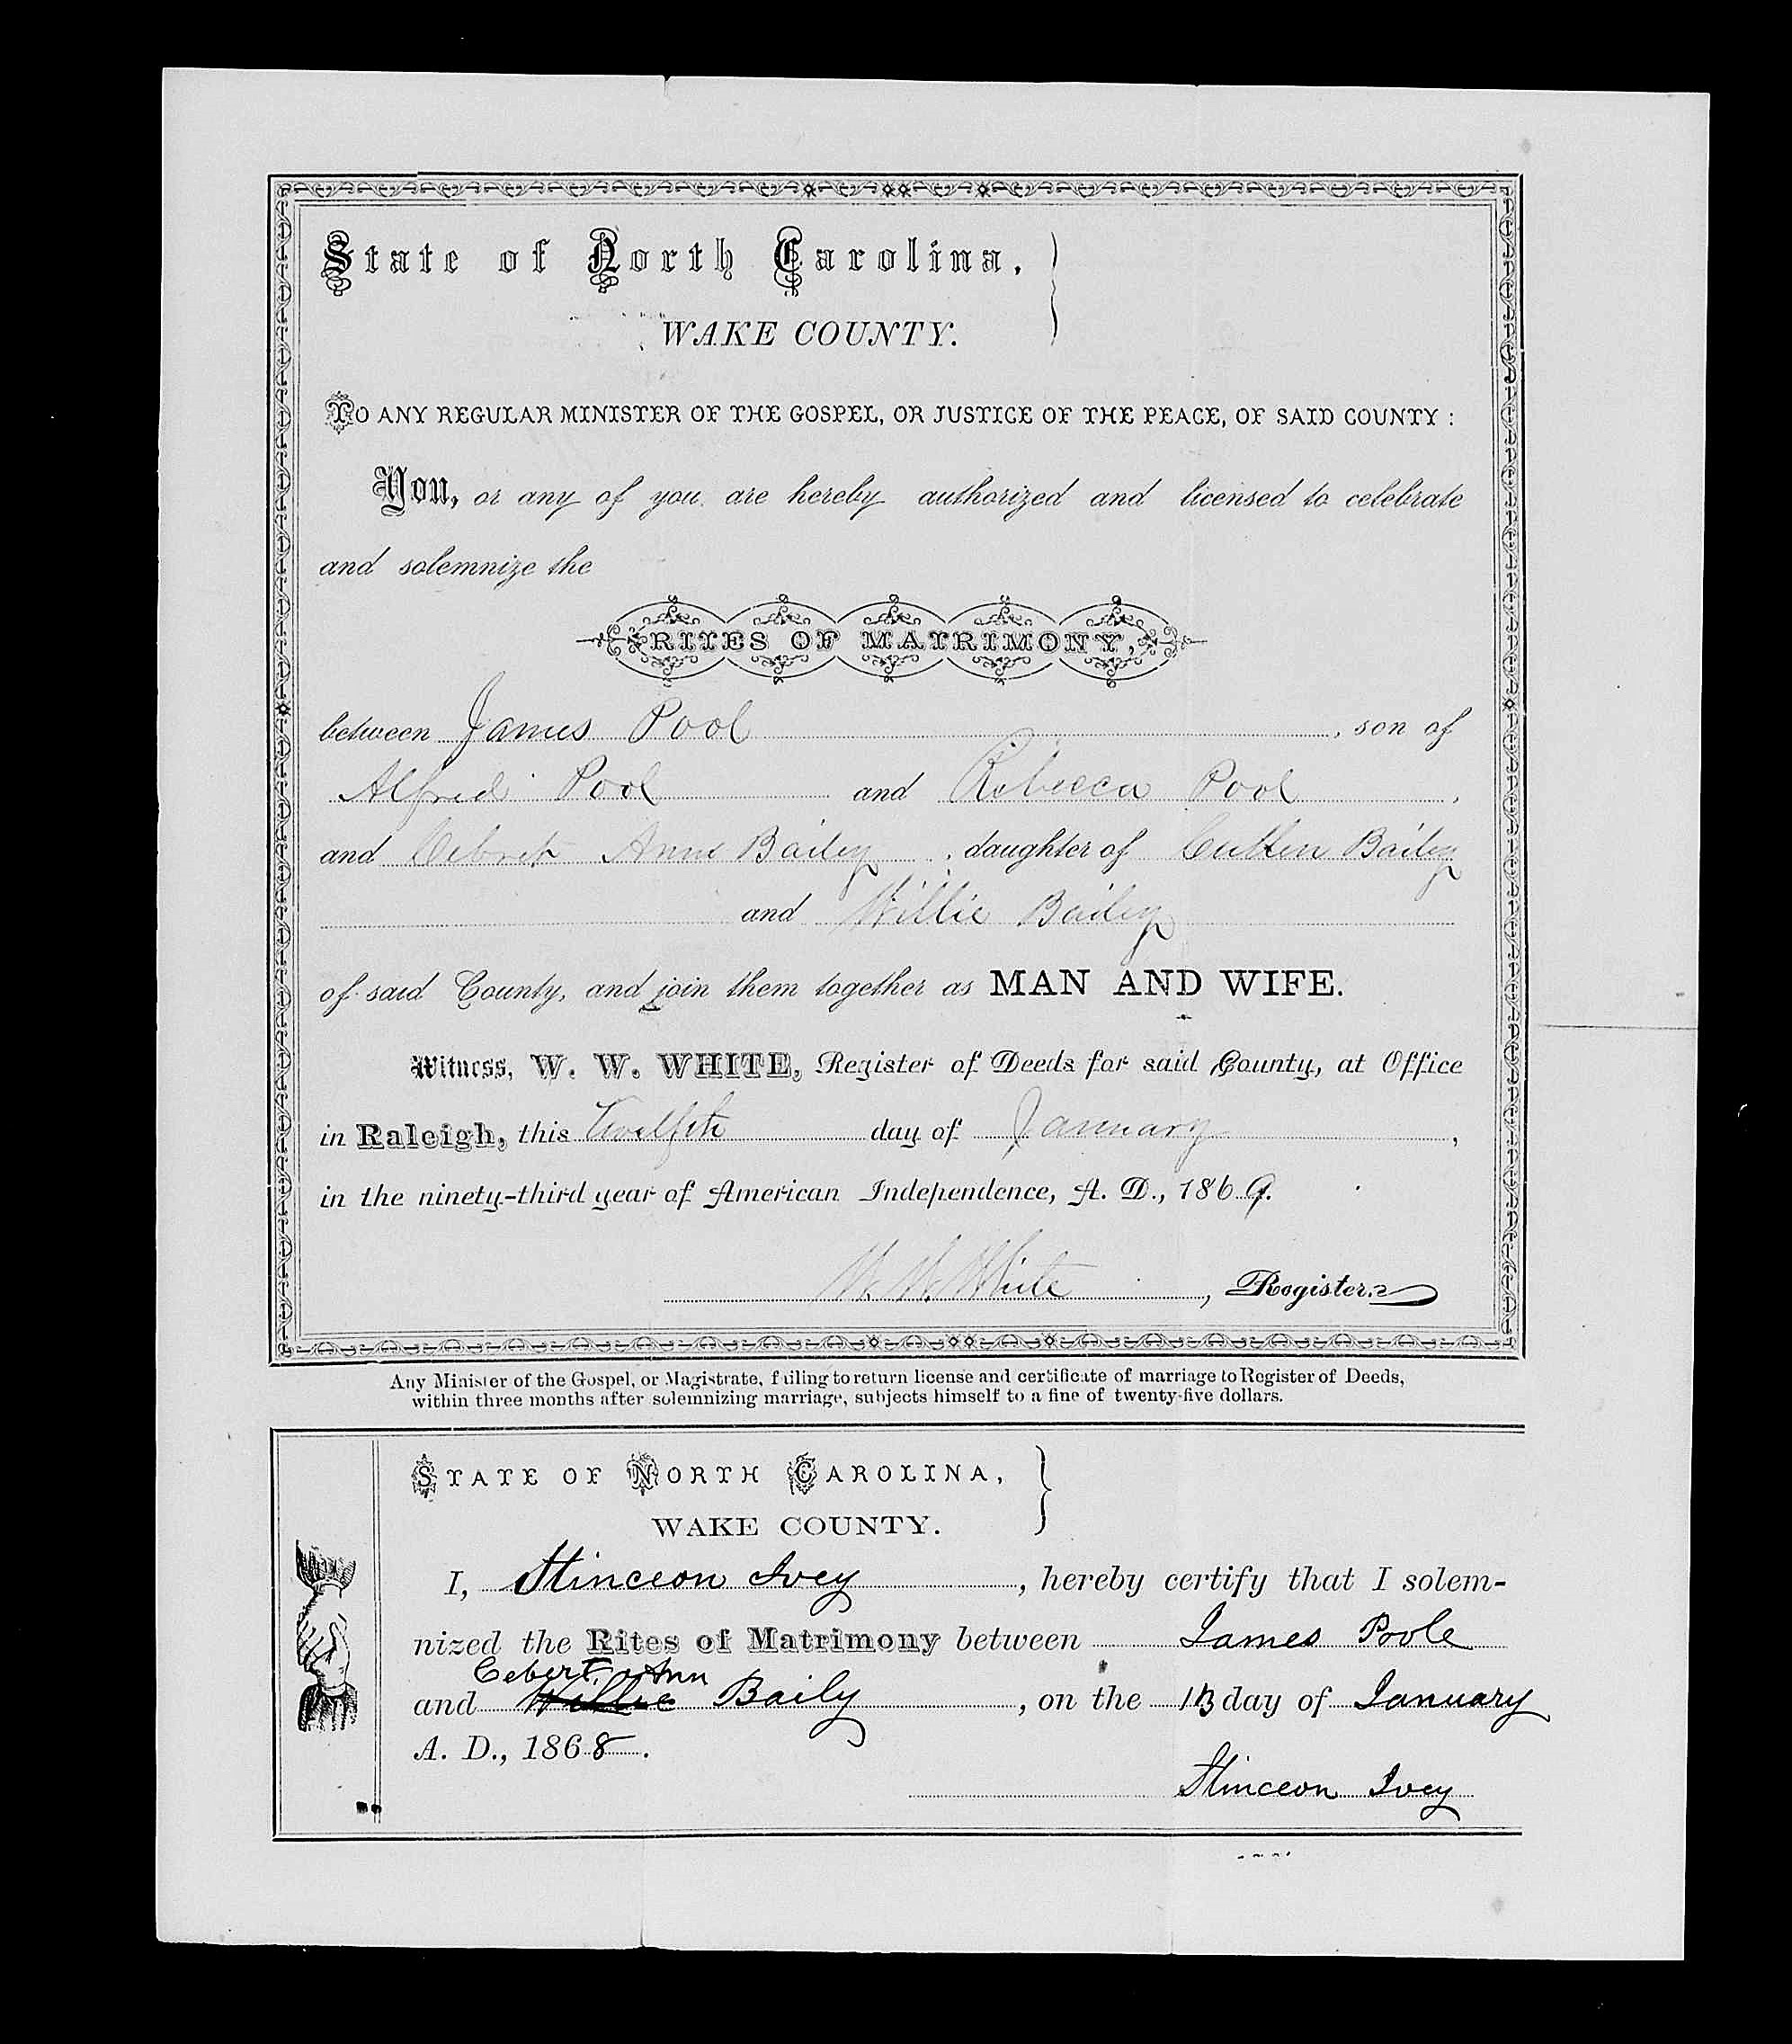 State of North Carolina,
WAKE COUNTY.
TO ANY REGULAR MINISTER OF THE GOSPEL, OR JUSTICE OF THE PEACE, OF SAID COUNTY :
You, or any of you are hereby authorized and licensed to celebrate
and solemnize the
RITES OF MATRIMONY,
between James Pool , son of
Alfred Pool and Rebecca Pool ,
and Ann Bailey , daughter of Bailey
and Willie Bailey
of said County, and join them together as MAN AND WIFE.
Witness, W. W. WHITE, Register of Deeds for said County, at Office
in Raleigh, this Twelfth day of January ,
in the ninety-third year of American Independence, A. D., 1869.
W. W. White , Register.
Any Minister of the Gospel, or Magistrate, failing to return license and certificate of marriage to Register of Deeds,
within three months after solemnizing marriage, subjects himself to a fine of twenty-five dollars.
STATE OF NORTH CAROLINA,
WAKE COUNTY.
I, Stinceon Ivey , hereby certify that I solem-
nized the Rites of Matrimony between James Poole
Cebert Ann
and Willie Baily , on the 13 day of January
A. D., 1868 .
Stinceon Ivey